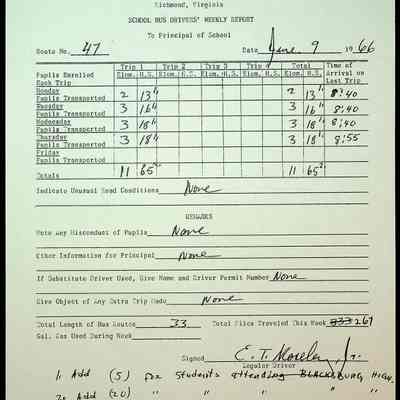 Richmond, Virginia
SCHOOL BUS DRIVERS' WEEKLY REPORT
To Principal of School
Route No. 47 Date June 9 1966
Trip 1 Trip 2 Trip 3 Trip 4 Total Time of
Pupils Enrolled Elem. H.S. Elem. H.S. Elem. H.S. Elem. H.S. Elem. H.S. Arrival on
Each Trip Last Trip
Monday
Pupils Transported 2 13 2 13 8:40
Tuesday
Pupils Transported 3 16 3 16 8:40
Wednesday
Pupils Transported 3 18 3 18 8:40
Thursday
Pupils Transported 3 18 3 18 8:55
Friday
Pupils Transported
Totals 11 65 11 65
Indicate Unusual Road Conditions None
REMARKS
Note Any Misconduct of Pupils None
Other Information for Principal None
If Substitute Driver Used, Give Name and Driver Permit Number None
Give Object of Any Extra Trip Made None
Total Length of Bus Route 33 Total Miles Traveled This Week 267
Gal. Gas Used During Week
Signed E. T. Jr.
Regular Driver
Add (5) for Students attending BLACKSBURG HIGH.
Add (20) " " " " "